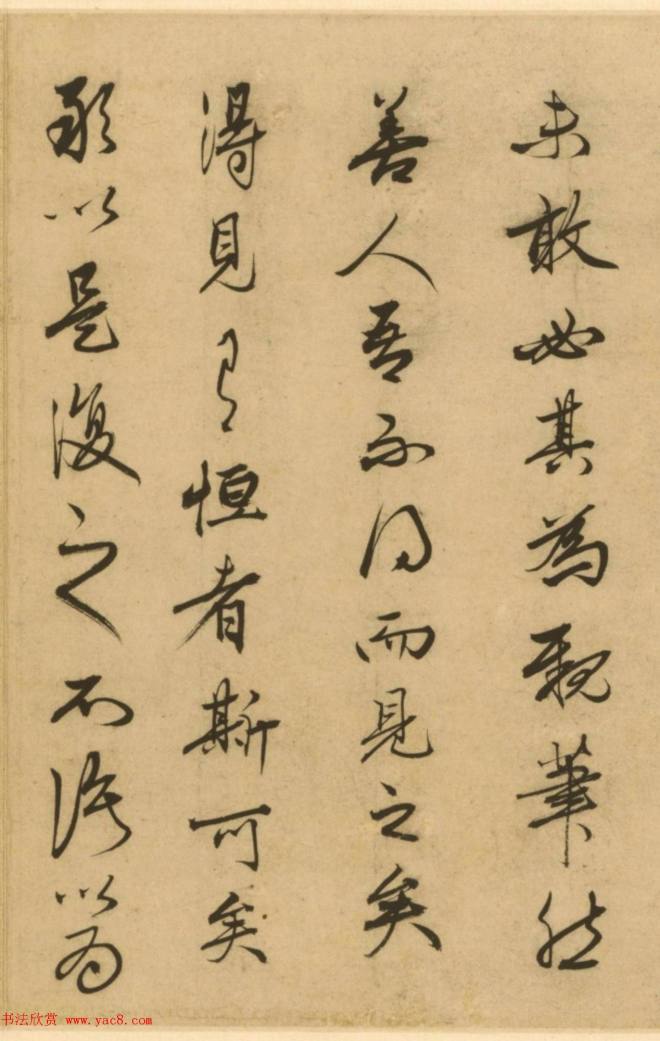 未敢必其為親筆然
善人吾不得而見之矣
得見有恒者斯可矣
聊以是復之石以為
书法欣赏 www.yac8.com